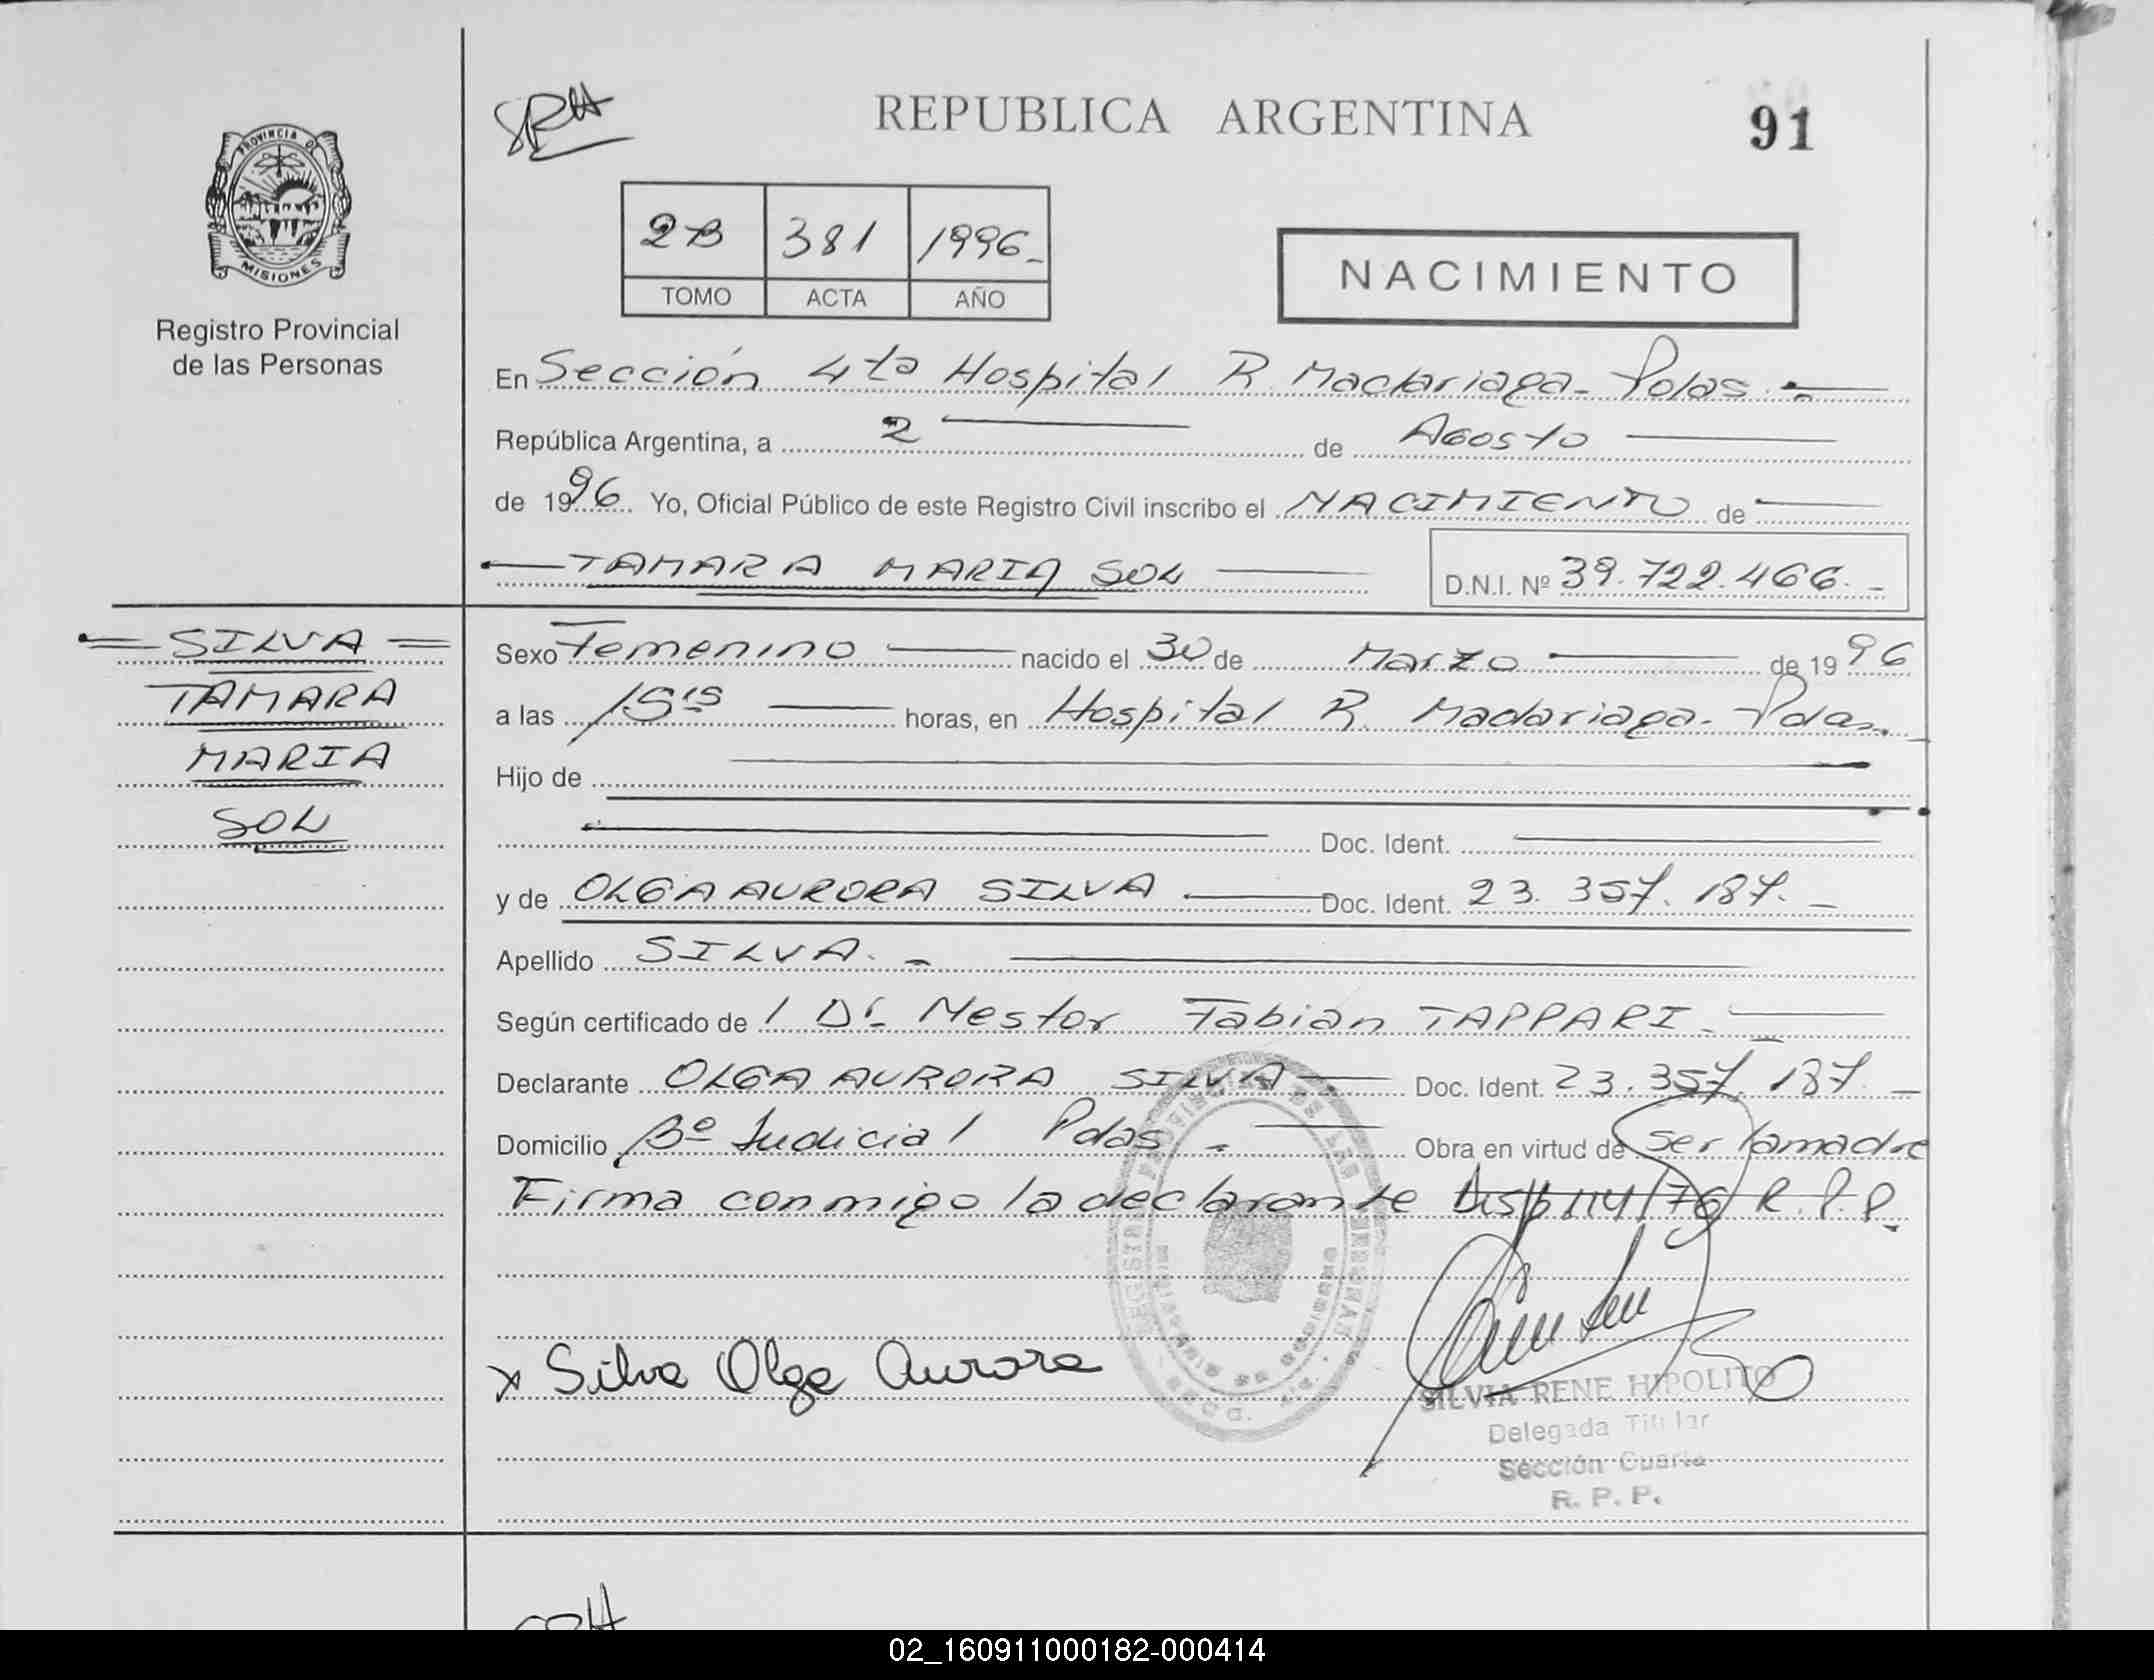 SRH
REPUBLICA ARGENTINA
91
PROVINCIA DE
MISIONES
Registro Provincial
de las Personas
2B 381 1996_
TOMO ACTA AÑO
NACIMIENTO
En Sección 4ta Hospital R. Madariaga - Pdas. -
República Argentina, a 2 de Agosto
de 1996. Yo, Oficial Público de este Registro Civil inscribo el NACIMIENTO de
TAMARA MARIA SOL D.N.I. Nº 39.722.466.-
SILVA
TAMARA
MARIA
SOL
Sexo Femenino nacido el 30 de Marzo de 1996
a las 15 horas, en Hospital R. Madariaga - Pdas.
Hijo de
Doc. Ident.
y de OLGA AURORA SILVA Doc. Ident. 23.357.187.-
Apellido SILVA. -
Según certificado de 1 Dr. Nestor Fabián TAPPARI -
Declarante OLGA AURORA SILVA Doc. Ident. 23.357.187. -
Domicilio Bº Judicial Pdas - Obra en virtud de ser la madre
Firma conmigo la declarante Disp 114/76 R.P.P.
x Silva Olga Aurora
SILVIA RENE HIPOLITO
Delegada Titular
Sección Cuarta
R. P. P.
SRH
02_160911000182-000414